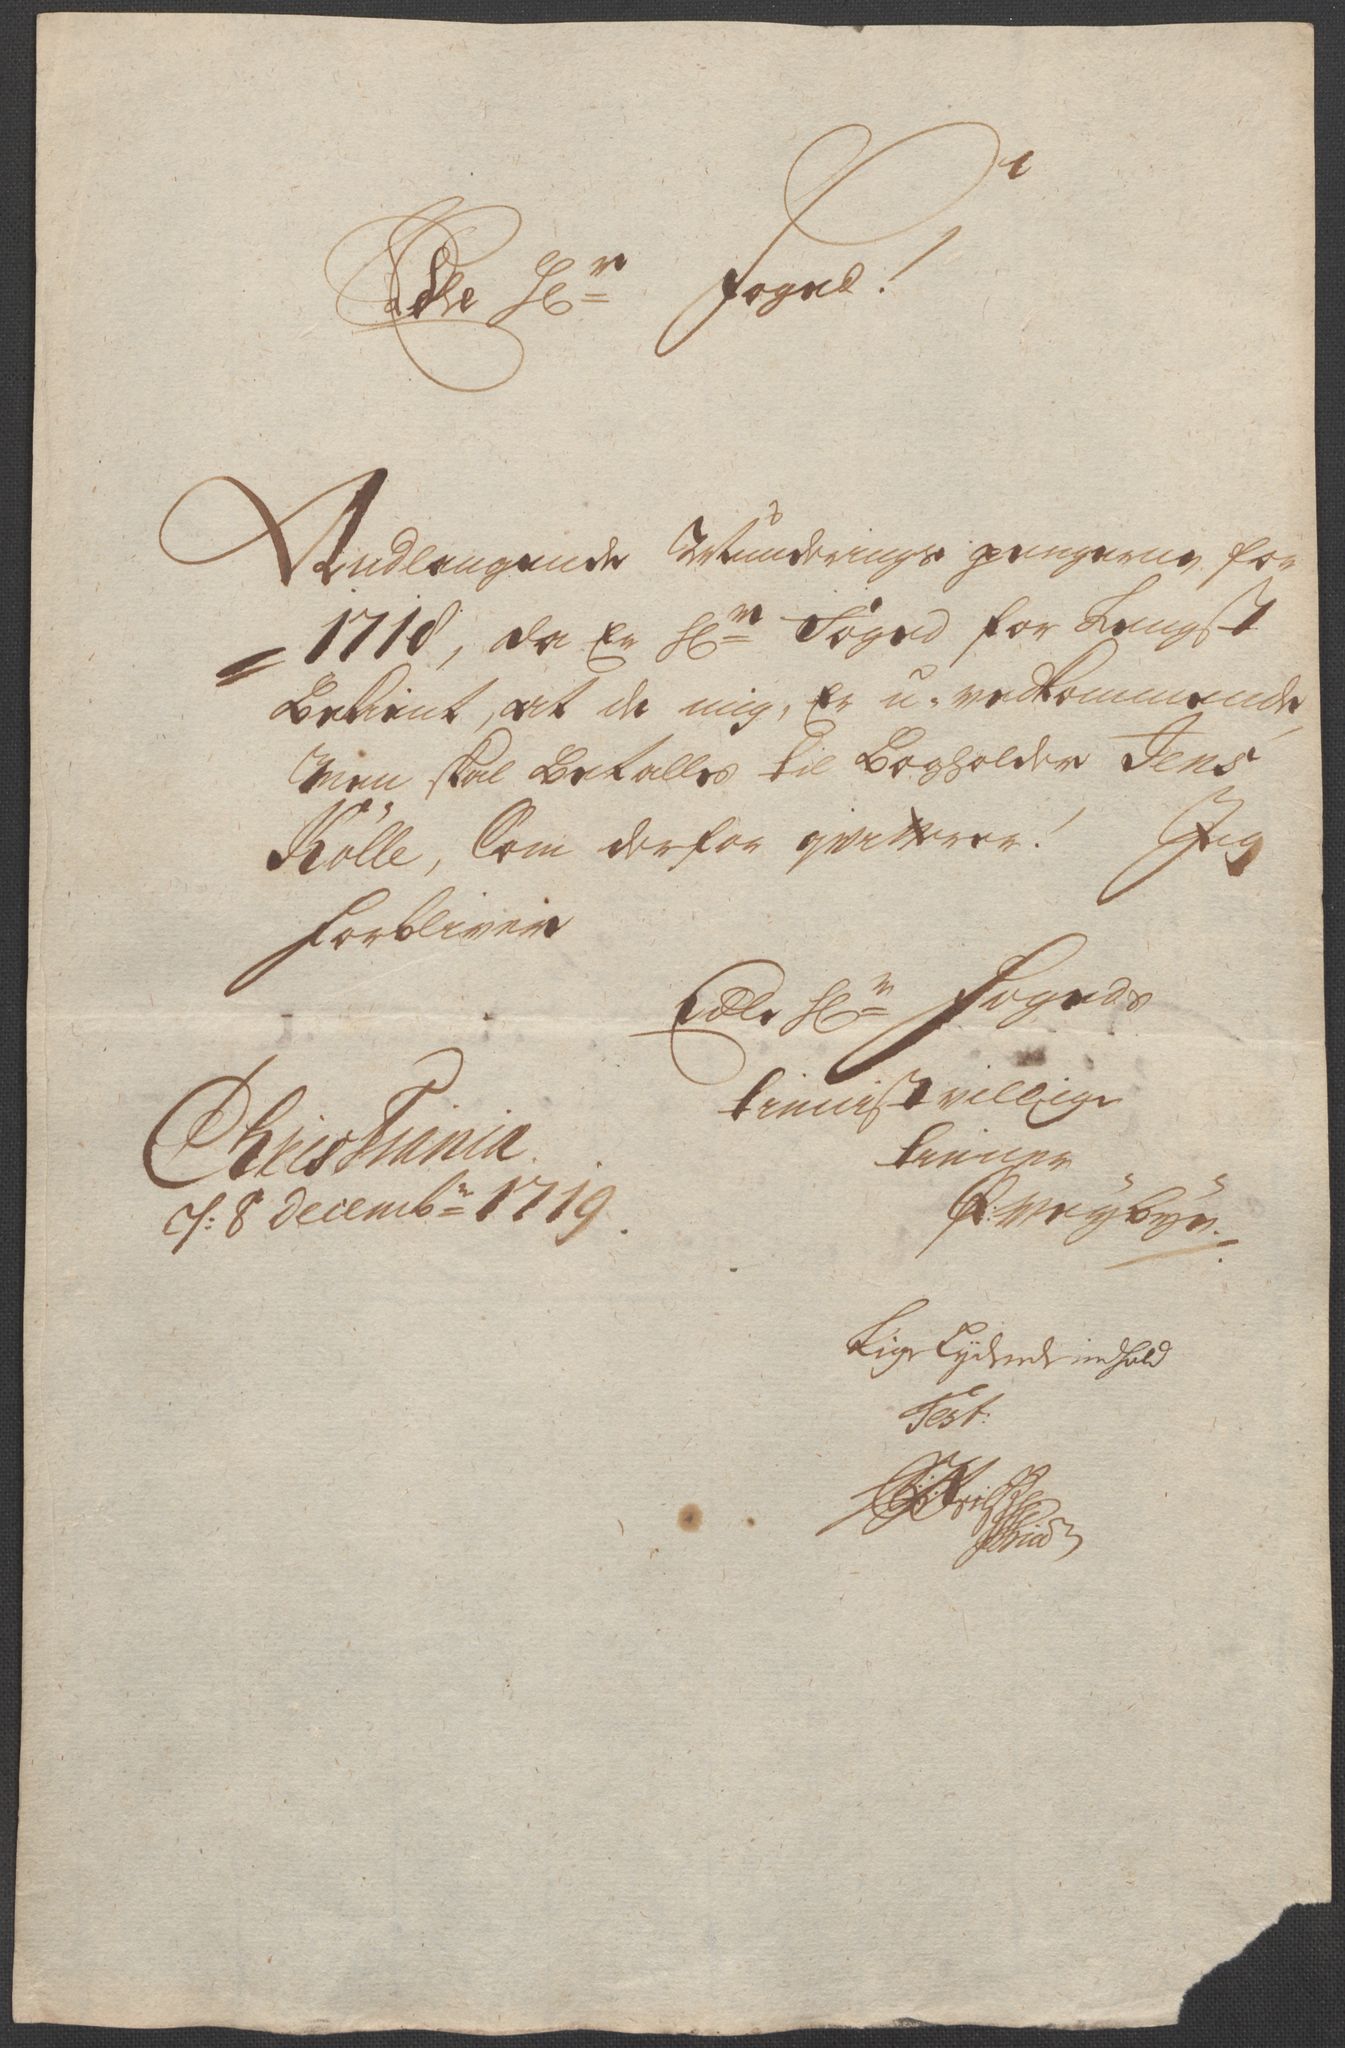 Edle Hr Foged!
Andlangende Munderings pengerne for
1718, da Er Hr Foged for Lengst
Bekient, at de mig, Er u-vedkommende,
Men skal Betalles til Bogholder Jens
Kölle, Som derfor qvitterer! Jeg
forbliver
Edle Hr Fogeds
tienistvillige
tienner
Christiania
d: 8 decembr 1719.
Lige Lydende indhold
Test: